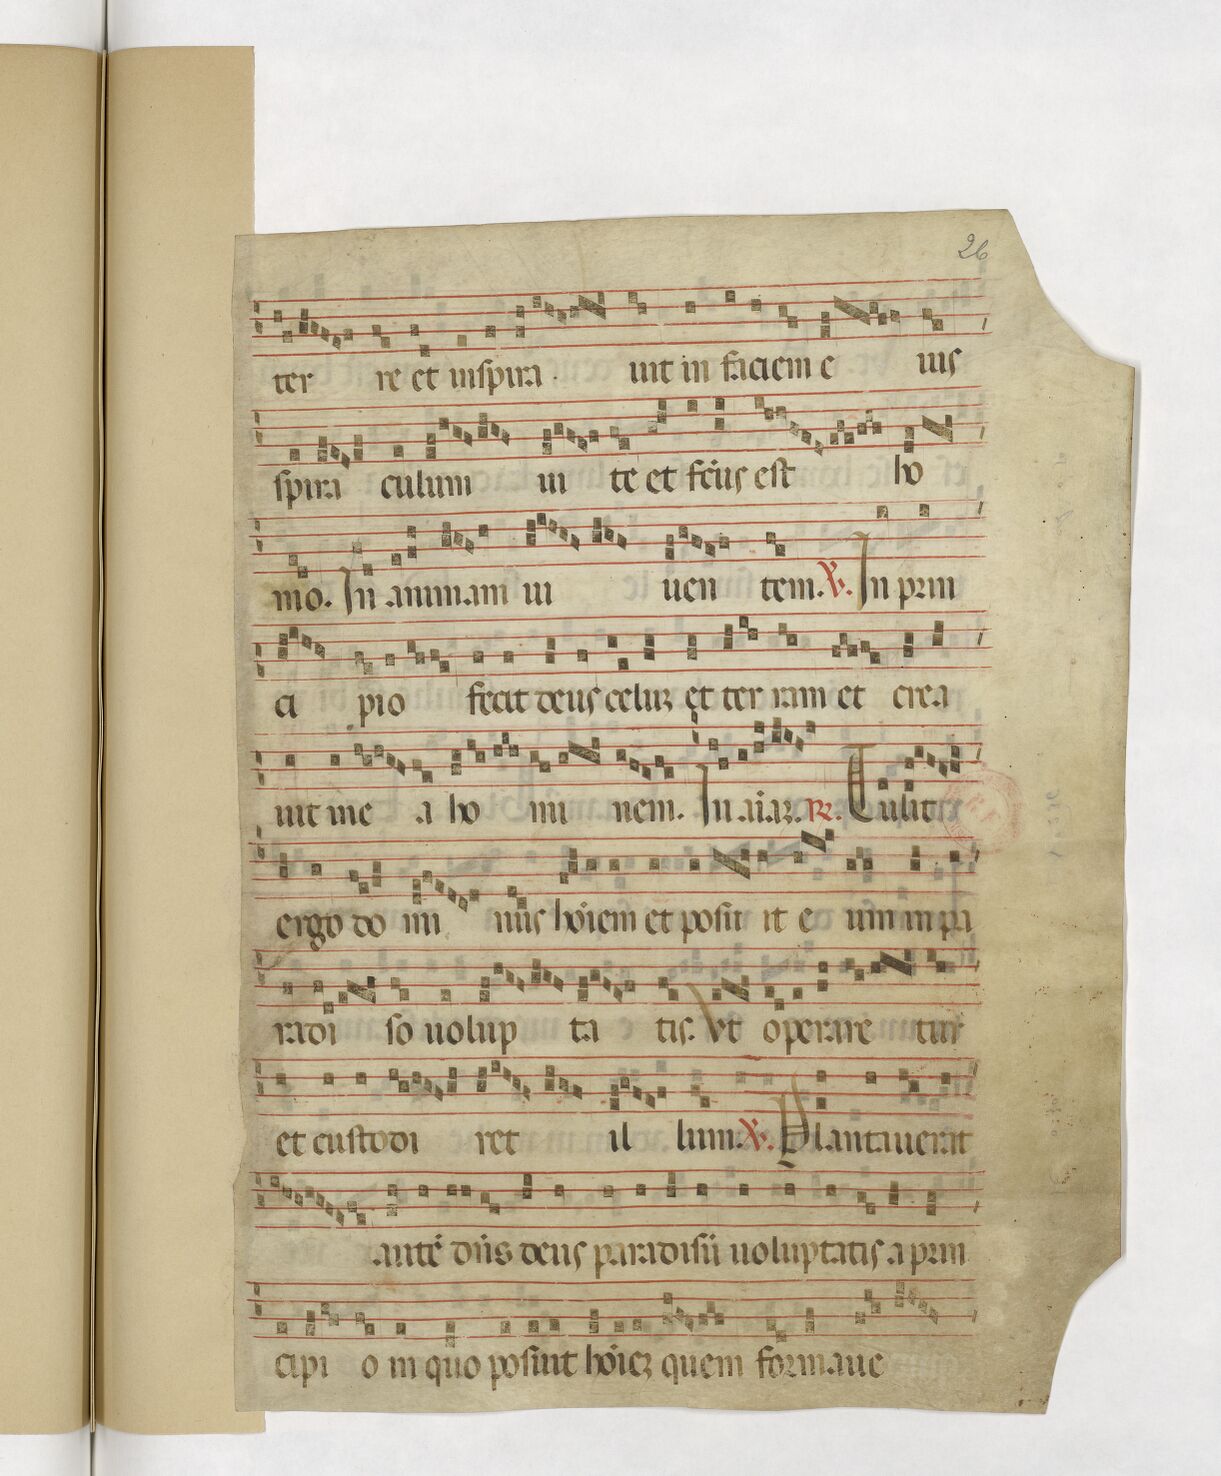 26
ter re et inspira uit in faciem e ius
spira culum ui te et fc̄us est ho
mo. In animam ui uen tem. ℣. In prin
ci pio fecit deus celuꝫ et ter ram et crea
uit me a ho mi nem. In aīaꝫ. ℟. Tulit
ergo do mi nus hōiem et posu it e um in pa
radi so uolup ta tis. Vt operare tur
et custodi ret il lum. ℣. Plantauerat
autē dn̄s deus paradisū uoluptatis a prin
cipi o in quo posuit hōieꝫ quem formaue